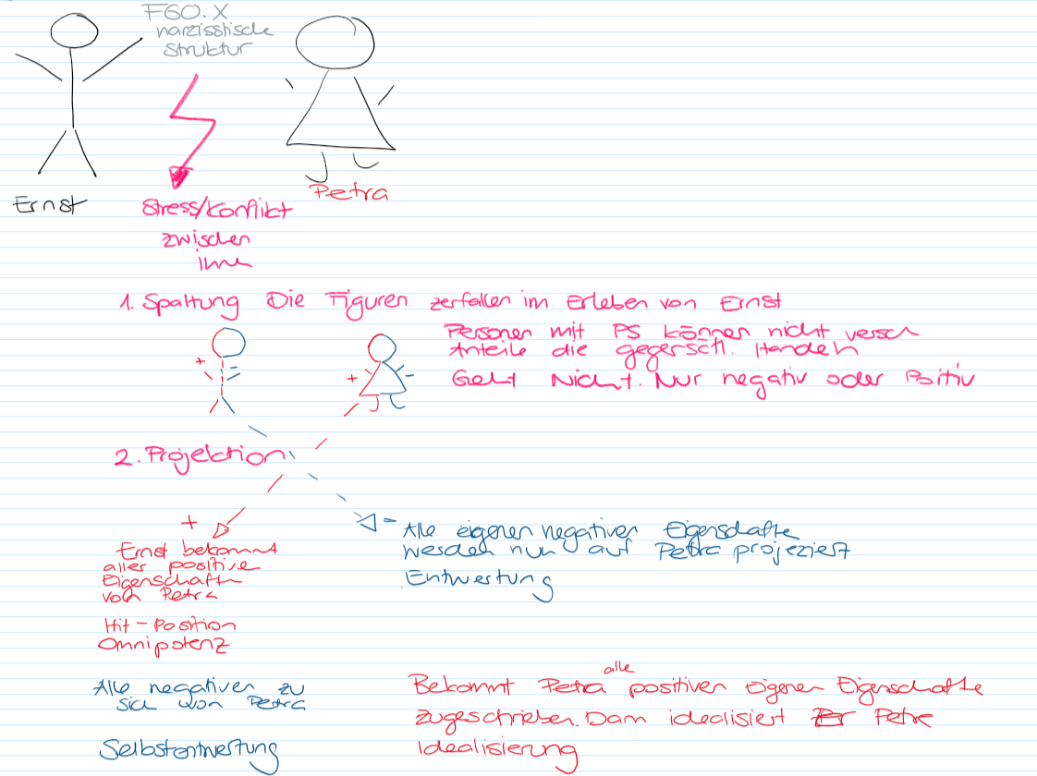 F60.X
narzisstische
Struktur
Ernst
Petra
Stress/Konflikt
zwischen
ihne
1. Spaltung Die Figuren zerfallen im Erleben von Ernst
Personen mit PS können nicht versch
Anteile die gegensätl. Handeln
Geht Nicht. Nur negativ oder Positiv
+ -
+ -
2. Projektion
+
Ernst bekommt
aller positive
Eigenschaften
von Petra
Hit-Position
Omnipotenz
- Alle eigenen negativen Eigenschafte
werden nun auf Petra projeziert
Entwertung
Alle negativen zu
sich von Petra
Selbstentwertung
alle
Bekommt Petra positiven eigenen Eigenschafte
zugeschrieben. Dann idealisiert Er Petra
Idealisierung